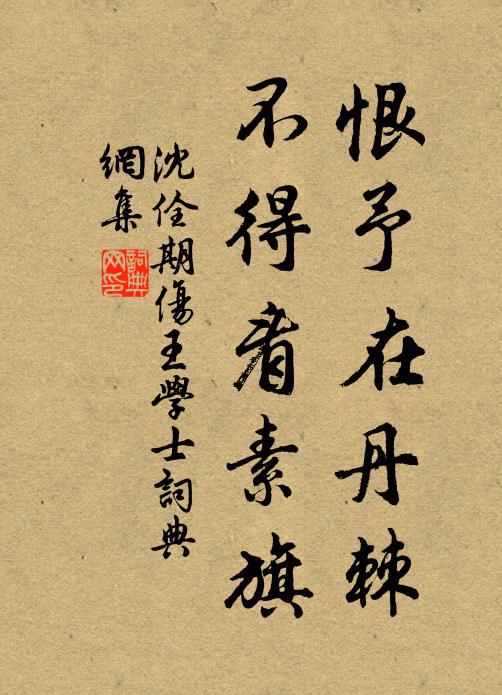 恨予在丹棘
不得看素旗
沈佺期傷王學士詞典
網集
詞典
网印